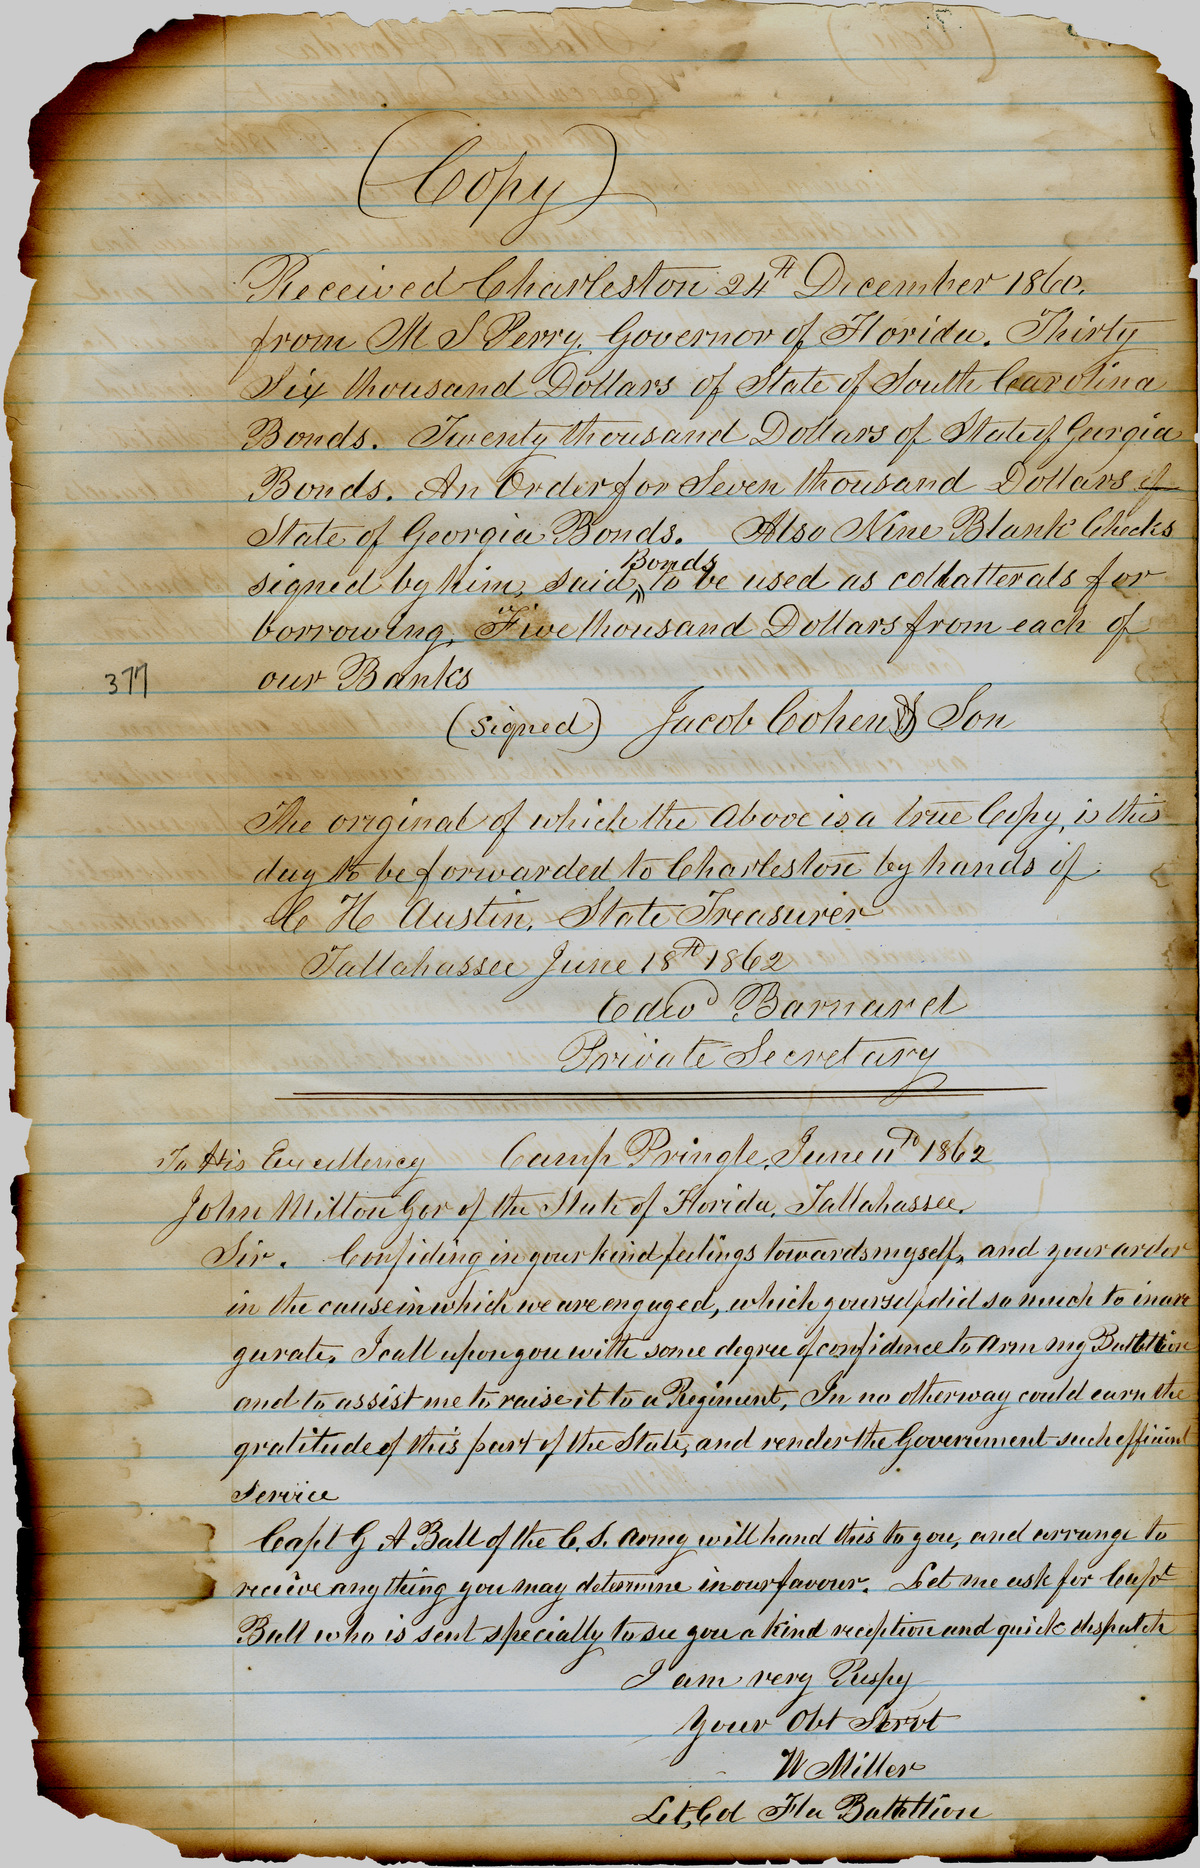 (Copy)
Received Charleston 24th December 1860.
from M S Perry, Governor of Florida. Thirty
Six thousand Dollars of State of South Carolina
Bonds. Twenty thousand Dollars of State of Georgia
Bonds. An Order for Seven thousand Dollars of
State of Georgia Bonds. Also Nine Blank Checks
signed by him, said Bonds to be used as collatterals for
borrowing, Five thousand Dollars from each of
our Banks
377
(signed) Jacob Cohen & Son
The original of which the above is a true Copy, is this
day to be forwarded to Charleston by hands of
C H Austin, State Treasurer
Tallahassee June 18th 1862
Edwd Barnard
Private Secretary
To His Excellency Camp Pringle, June 11th 1862
John Milton Gov of the State of Florida, Tallahassee.
Sir. Confiding in your kind feelings towards myself, and your ardor
in the cause in which we are engaged, which yourself did so much to inau
gurate, I call upon you with some degree of confidence to arm my Battallion
and to assist me to raise it to a Regiment, In no other way could earn the
gratitude of this part of the State, and render the Government such efficient
service
Capt G A Ball of the C. S. Army will hand this to you, and arrange to
receive any thing you may determine in our favour. Let me ask for Capt
Ball who is sent specially to see you a kind reception and quick dispatch
I am very Respy
Your Obt Servt
W Miller
Lt, Col Fla Battallion